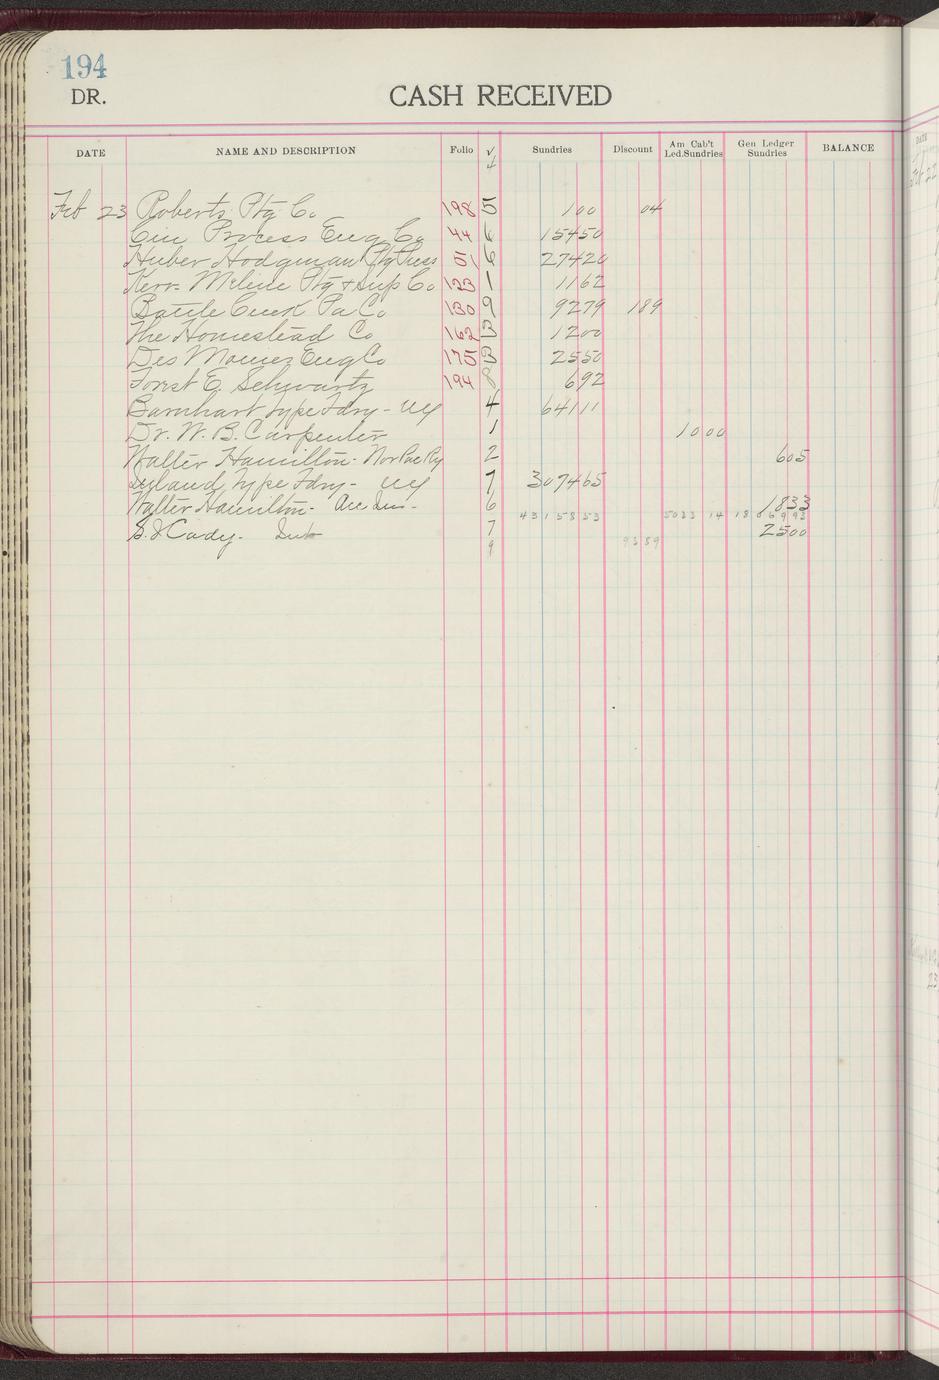 194
DR.
CASH RECEIVED
DATE NAME AND DESCRIPTION Folio √ Sundries Discount Am Cab't Led.Sundries Gen Ledger Sundries BALANCE
4
Feb 23 Roberts Ptg Co 198 5 100 04
Cin Process Eng Co 44 6 15450
Huber Hodgman Ptg Press 51 6 27420
Kerr Ptg & Sup Co 123 1 1162
Battle Creek Pa Co 130 9 9279 189
The Homestead Co 162 3 1200
Des Moines Eng Co 175 3 2550
Forest E. Schwartz 194 8 692
Barnhart Type Fdry - NY 4 64111
Dr. W. B. Carpenter 1 1000
Walter Hamilton - Nor Pac Ry 2 605
Inland Type Fdry - NY 7 307465
Walter Hamilton - Acc Ins - 6 1833
4315853 5033 14 1806993
Cady - Int 7 2500
9 9359